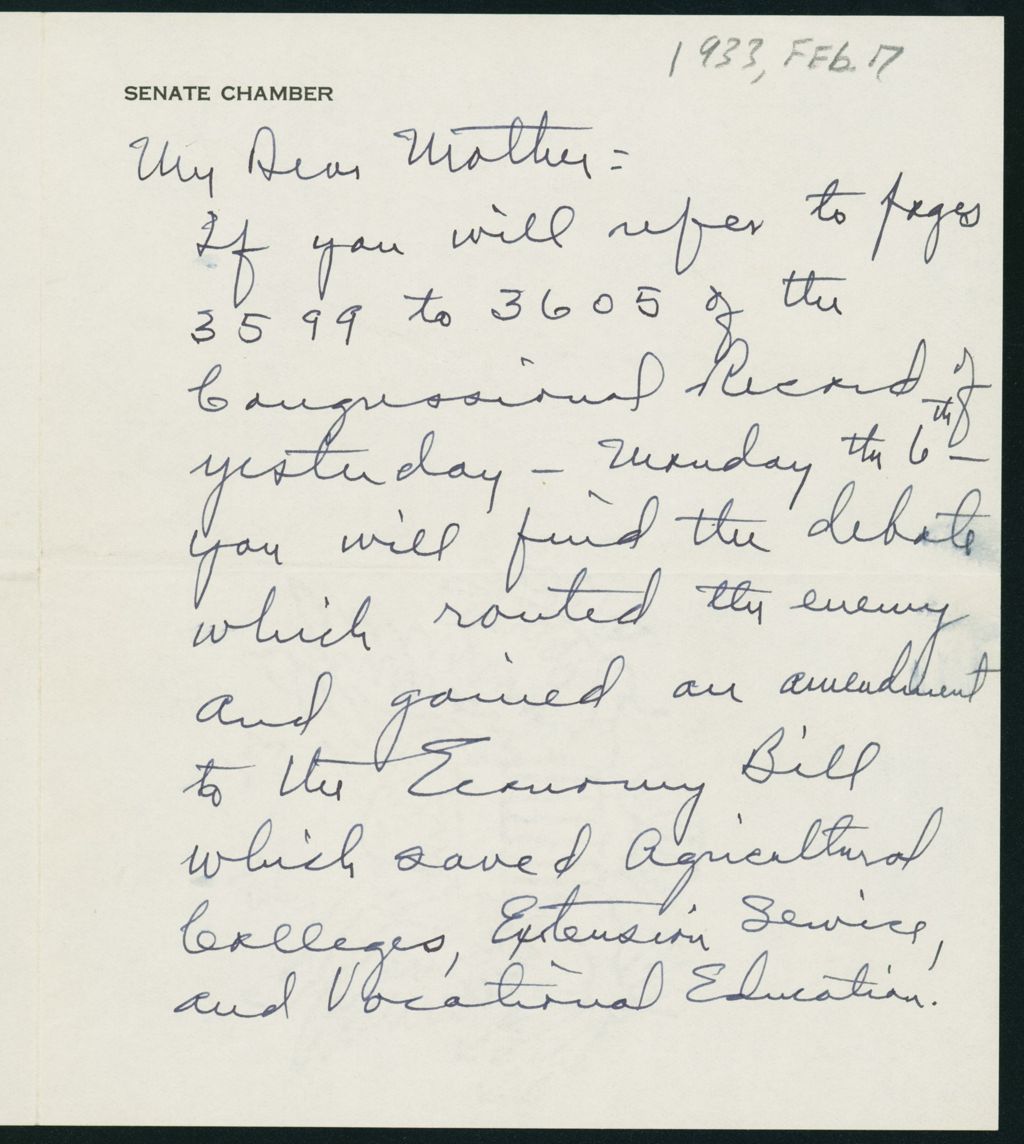 1933, FEb. 7
SENATE CHAMBER
My Dear Mother =
If you will refer to pages
3599 to 3605 of the
Congressional Record of
yesterday - Monday the 6th -
you will find the debate
which routed the enemy
and gained an amendment
to the Economy Bill
which saved Agricultural
Colleges, Extension Service,
and Vocational Education.